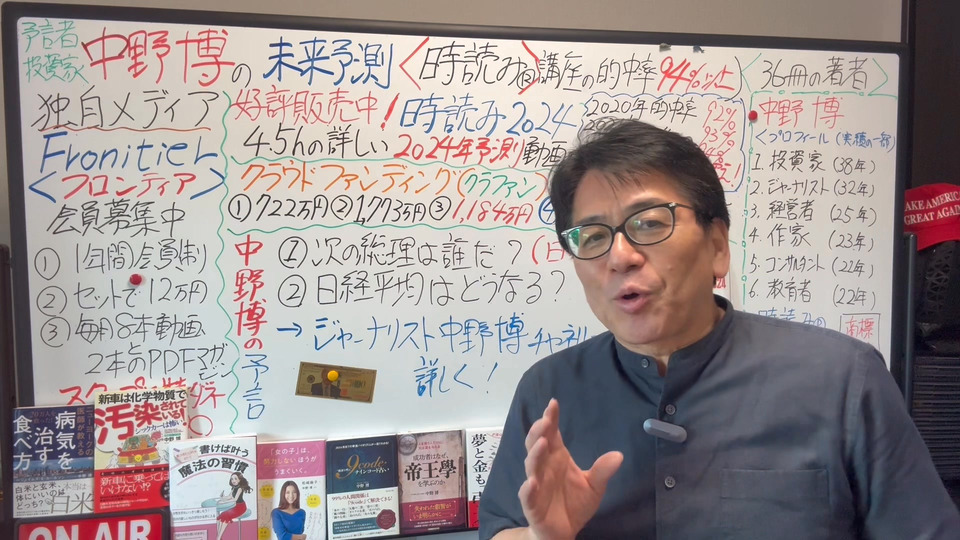 予言者
投資家
中野博の未来予測
<時読み®講座の的中率94%以上>
<36冊の著者>
独自メディア
Frontier
<フロンティア>
会員募集中
① 1年間会員制
② セットで12万円
③ 毎月8本動画
2本のPDFマガジン
好評販売中!
時読み2024
4.5hの詳しい2024年予測動画
2020年的中率 92%
93%
クラウドファンディング(クラファン)
①722万円②1,773万円③1,184万円
中野博の予言
① 次の総理は誰だ?
② 日経平均はどうなる?
→ジャーナリスト中野博チャネル
詳しく!
中野博
<プロフィール(実績の一部)
1. 投資家(38年)
2. ジャーナリスト(32年)
3. 経営者(25年)
4. 作家(23年)
5. コンサルタント(22年)
6. 教育者(22年)
AKE AMERICA
GREAT AGAIN
病気を治す食べ方
白米と玄米、体にいいのはどっち?
新車は化学物質で
汚染されている!
シックカーは怖い!
新車に乗ってはいけない!?
書けば叶う
魔法の習慣
「女の子」は、
努力しないほうが
うまくいく。
9code
成功者はなぜ、
帝王學
を学ぶのか
中野博
夢と金も
ON AIR